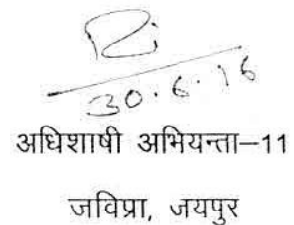 30.6.16
अधिशाषी अभियन्ता–11
जविप्रा, जयपुर